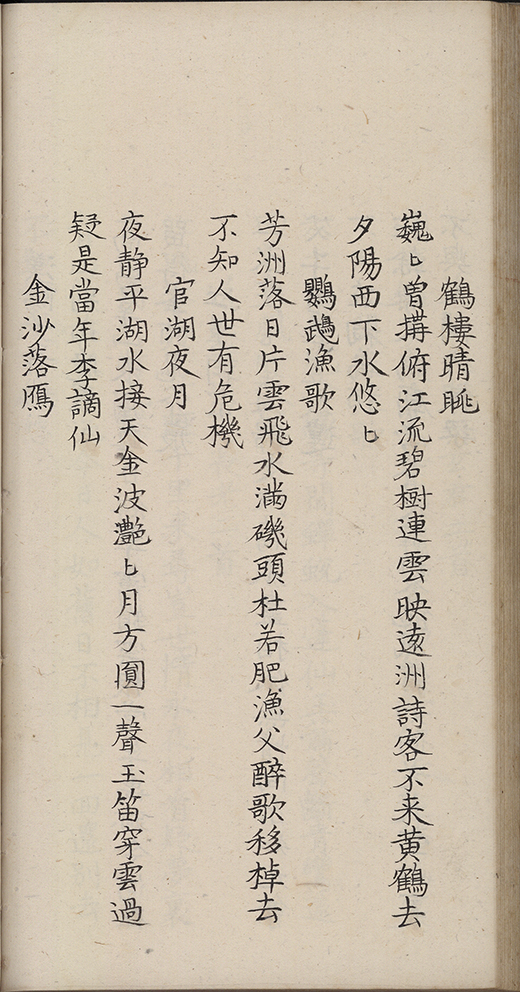 鶴樓晴眺
巍〻曾搆俯江流碧樹連雲映遠洲詩客不来黄鶴去
夕陽西下水悠〻
鸚鵡漁歌
芳洲落日片雲飛水滿磯頭杜若肥漁父醉歌移棹去
不知人世有危機
官湖夜月
夜静平湖水接天金波灧〻月方圓一聲玉笛穿雲過
疑是當年李謫仙
金沙落鴈